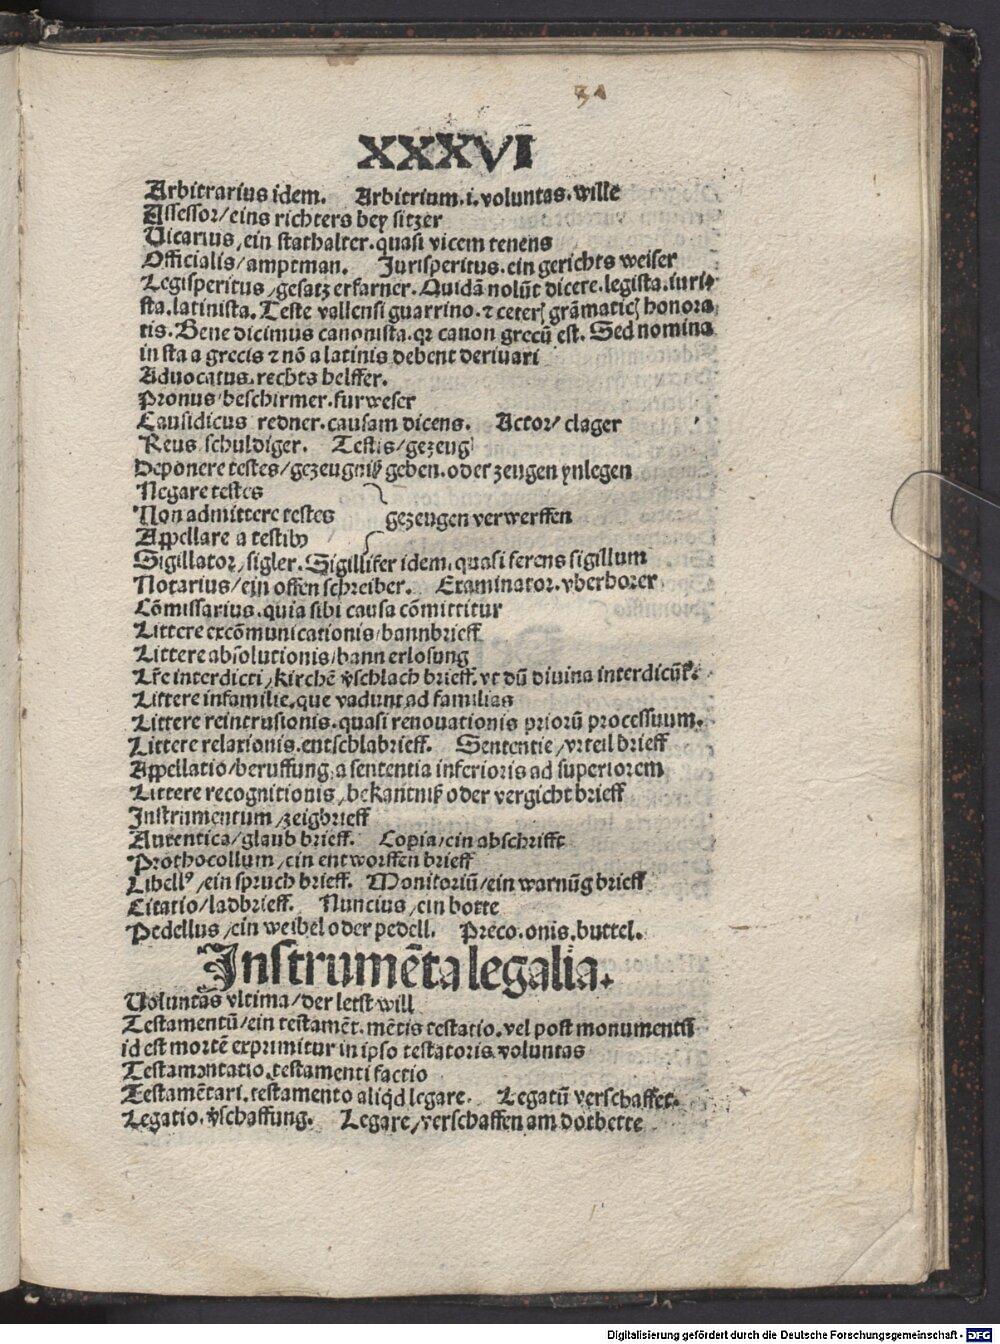 31
XXXVI
Arbitrarius idem. Arbitrium.i.voluntas.wille
Assessor/eins richters bey sitzer
Vicarius,ein stathalter.quasi vicem tenens
Officialis/amptman. Jurisperitus.ein gerichts weiser
Legisperitus/gesatz erfarner.Quidā nolūt dicere.legista.iuri⸗
sta.latinista.Teste vallensi guarrino.⁊ ceterꝭ grāmaticꝭ honora
tis.Bene dicimus canonista.qꝛ canon grecū est. Sed nomina
in sta a grecis ⁊ nō a latinis debent derivari
Advocatus.rechts helffer.
Pronus/beschirmer.furweser
Causidicus redner.causam dicens. Actor/clager
Reus schuldiger. Testis/gezeug
Deponere testes/gezeugniß geben.oder zeugen ynlegen
Negare testes
Non admittere testes gezeugen verwerffen
Appellare a testibꝰ
Sigillator/sigler.Sigillifer idem.quasi ferens sigillum
Notarius/ein offen schreiber. Examinator.vberhorer
Cōmissarius.quia sibi causa cōmittitur
Littere excōmunicationis/bannbrieff
Littere absolutionis/bann erlosung
Lr̄e interdicti/kirchē v̄schlach brieff.vt dū divina interdicūt̃.
Littere infamilie.que vadunt ad familias
Littere reintrusionis.quasi renouationis priorū processuum.
Littere relarionis.entschlabrieff. Sententie/vrteil brieff
Appellatio/beruffung,a sententia inferioris ad superiorem
Littere recognitionis/bekantniß oder vergicht brieff
Instrumentum/zeigbrieff
Autentica/glaub brieff. Copia/ein abschrifft
Prothocollum/ein entworffen brieff
Libellꝰ/ein spruch brieff. Monitoriū/ein warnūg brieff
Citatio/ladbrieff. Nuncius/ein botte
Pedellus/ein weibel oder pedell. Preco.onis.buttel.
Instrumēta legalia.
Voluntas vltima/der letst will
Testamentū/ein testamēt.mētis testatio.vel post monumentū
id est mortē exprimitur in ipso testatoris voluntas
Testamentatio.testamenti factio
Testamētari.testamento aliqd legare. Legatū verschaffet.
Legatio.v̄schaffung. Legare/verschaffen am dothette
Digitalisierung gefördert durch die Deutsche Forschungsgemeinschaft - DFG